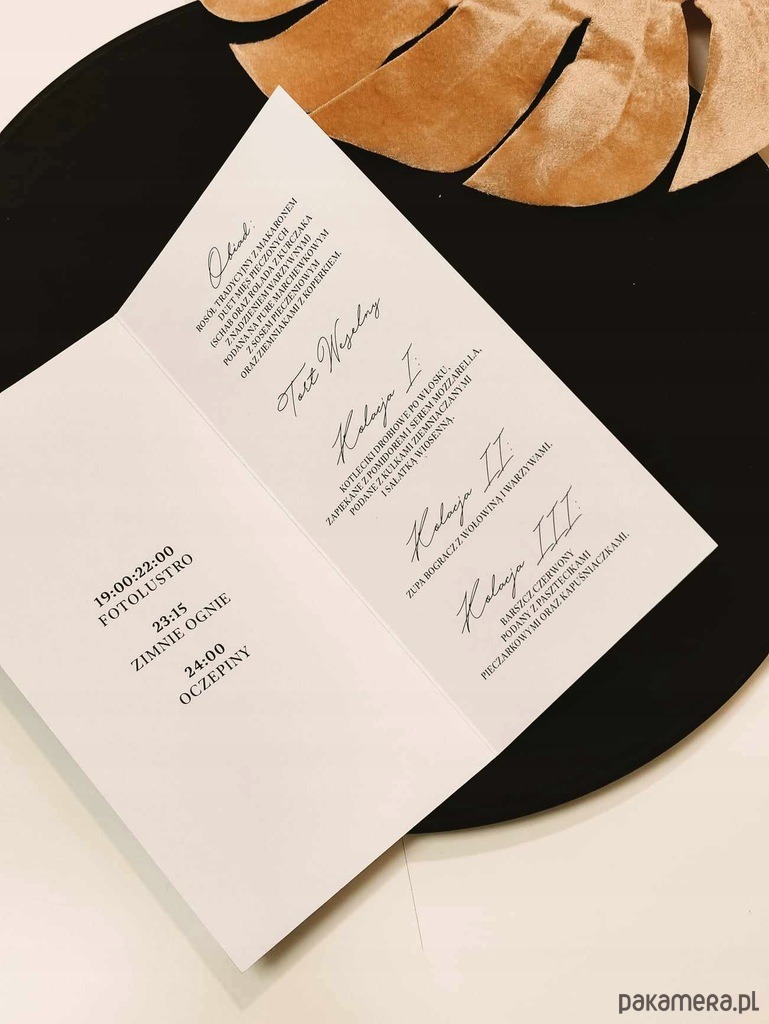 19:00:22:00
FOTOLUSTRO
23:15
ZIMNIE OGNIE
24:00
OCZEPINY
Obiad:
ROSÓŁ TRADYCYJNY Z MAKARONEM
DUET MIĘS PIECZONYCH
(SCHAB ORAZ ROLADA Z KURCZAKA
Z NADZIENIEM WARZYWNYM)
PODANA NA PURE MARCHEWKOWYM
Z SOSEM PIECZENIOWYM
ORAZ ZIEMNIAKAMI Z KOPERKIEM.
Tort Weselny
Kolacja I:
KOTLECIKI DROBIOWE PO WŁOSKU,
ZAPIEKANE Z POMIDOREM I SEREM MOZZARELLA,
PODANE Z KULKAMI ZIEMNIACZANYMI
I SAŁATKĄ WIOSENNĄ.
Kolacja II:
ZUPA BOGRACZ Z WOŁOWINĄ I WARZYWAMI.
Kolacja III:
BARSZCZ CZERWONY
PODANY Z PASZTECIKAMI
PIECZARKOWYMI ORAZ KAPUŚNIACZKAMI.
pakamera.pl